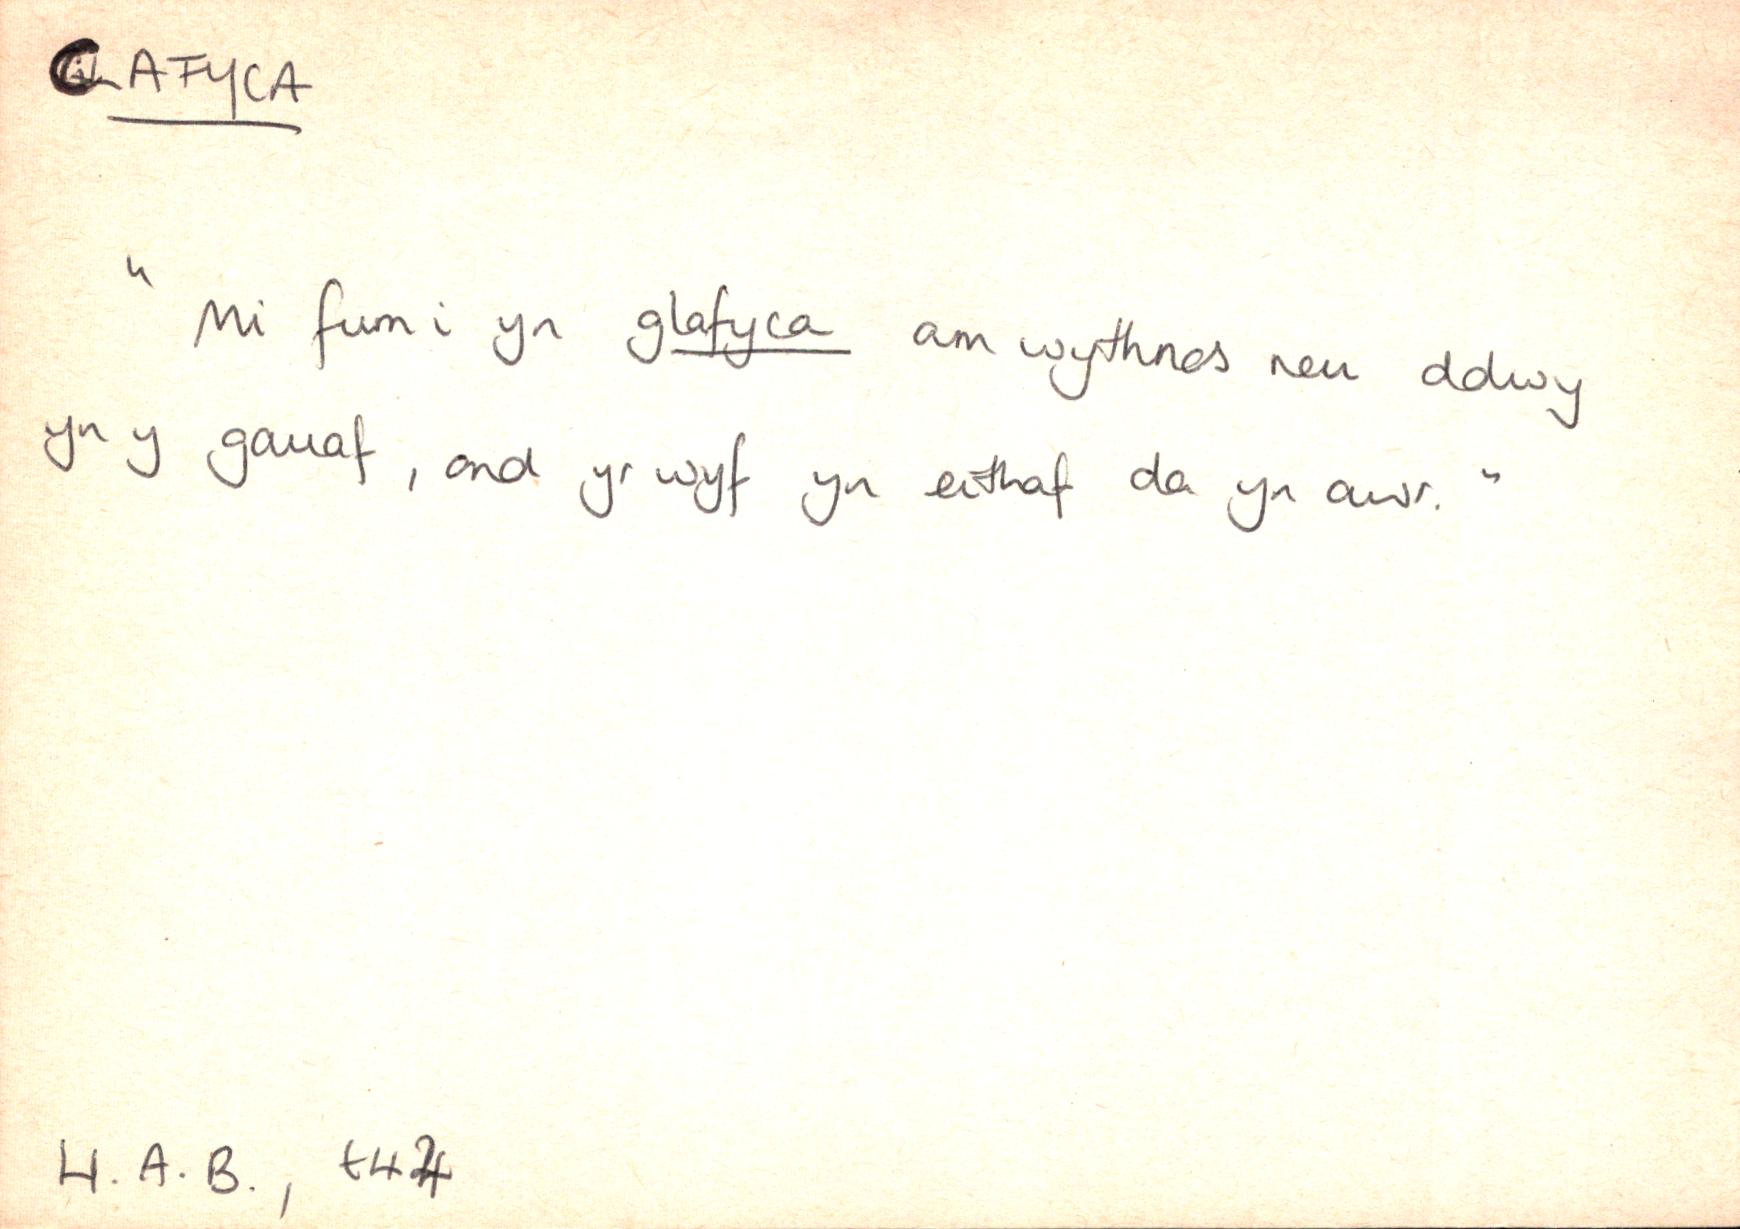 CLAFYCA
" Mi fum i yn glafyca am wythnos neu ddwy
yn y gauaf, ond yr wyf yn eithaf da yn awr. "
H. A. B.,